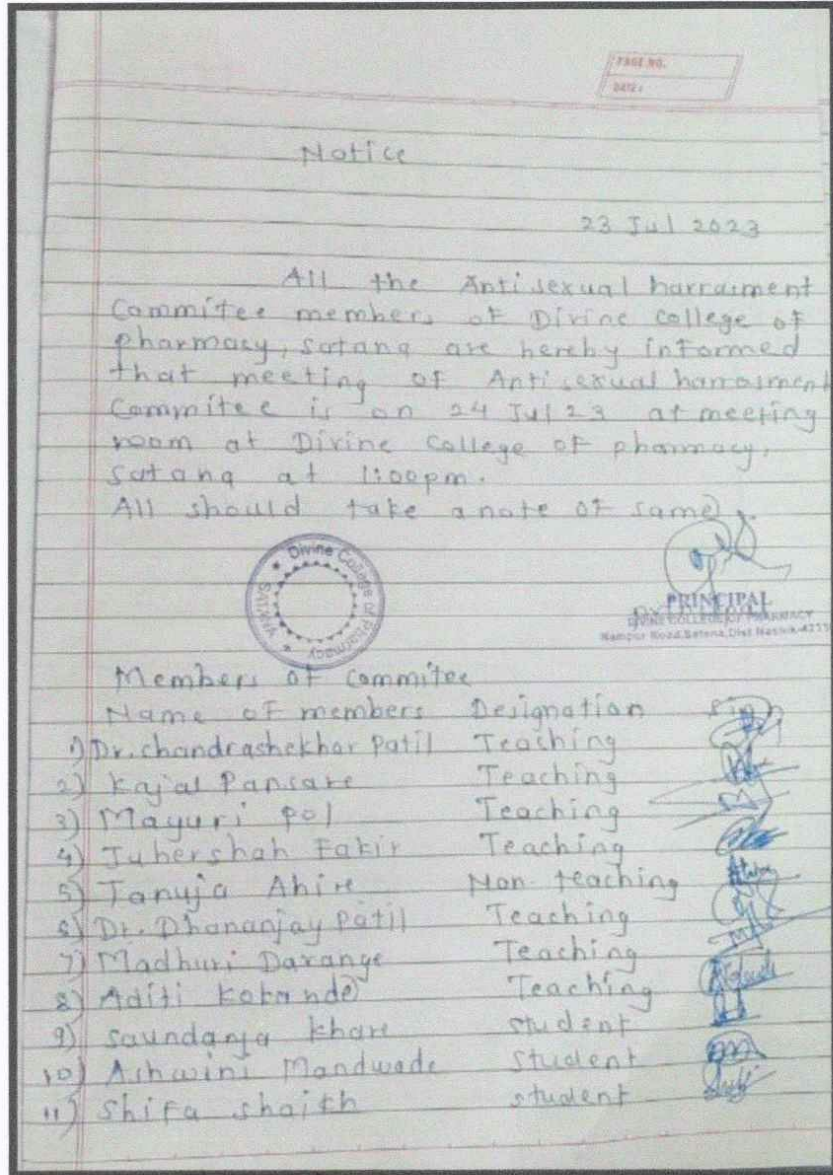 PAGE NO.
DATE:
Notice
23 Jul 2023
All the Antisexual harrasment
Commitee members of Divine College of
pharmacy, satana are hereby informed
that meeting of Antisexual harrasment
Commitee is on 24 Jul 23 at meeting
room at Divine College of pharmacy,
satana at 1:00pm.
All should take a note of same.
Divine College of Pharmacy
SATANA
PRINCIPAL
DIVINE COLLEGE OF PHARMACY
Nampur Road, Satana, Dist Nashik-
Members of commitee
Name of members Designation sign
1) Dr. chandrashekhar patil Teaching
2) Kajal Pansare Teaching
3) Mayuri pol Teaching
4) Jubershah Fakir Teaching
5) Tanuja Ahire Non-teaching
6) Dr. Dhananjay patil Teaching
7) Madhuri Darange Teaching
8) Aditi Kokande Teaching
9) saundarya khare student
10) Ashwini Mandwade student
11) Shifa shaikh student